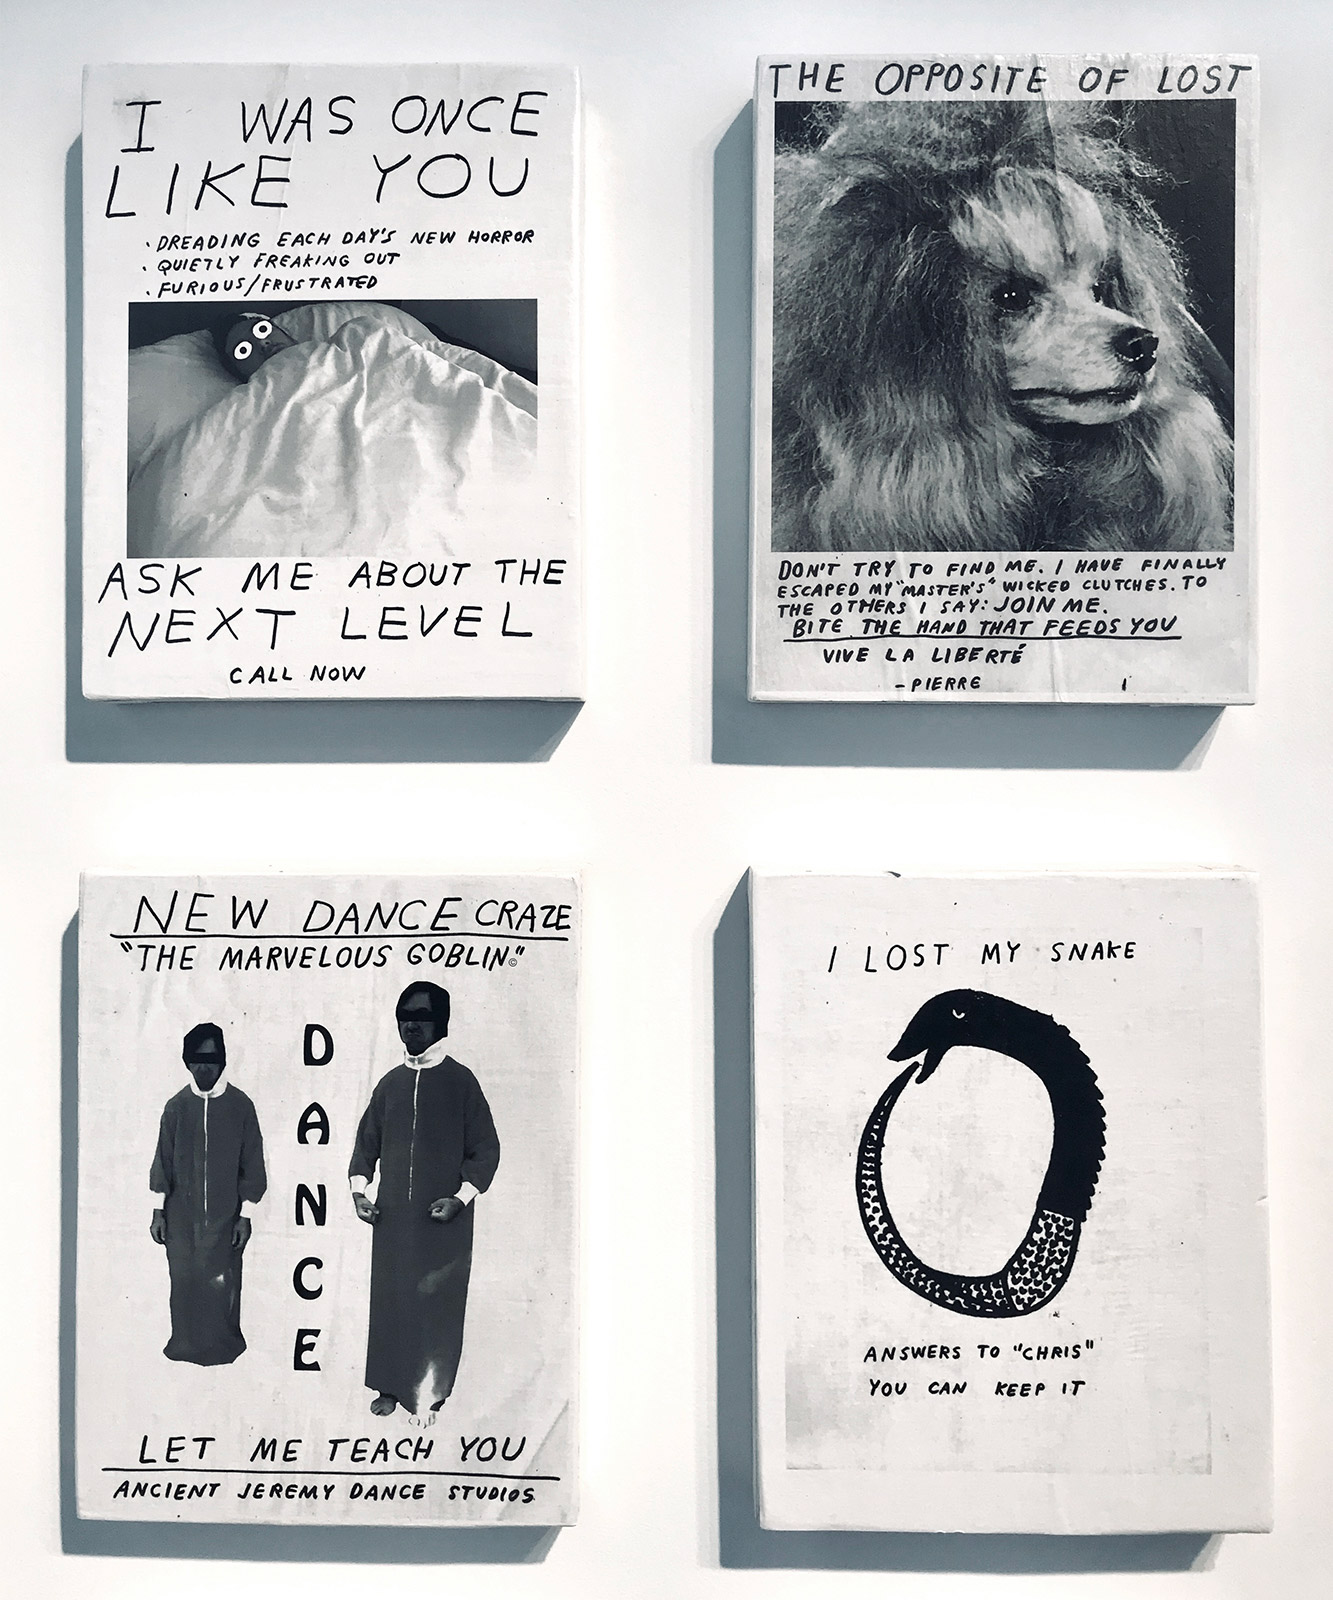 I WAS ONCE
LIKE YOU
· DREADING EACH DAY'S NEW HORROR
· QUIETLY FREAKING OUT
· FURIOUS/FRUSTRATED
ASK ME ABOUT THE
NEXT LEVEL
CALL NOW
THE OPPOSITE OF LOST
DON'T TRY TO FIND ME. I HAVE FINALLY
ESCAPED MY "MASTER'S" WICKED CLUTCHES. TO
THE OTHERS I SAY: JOIN ME.
BITE THE HAND THAT FEEDS YOU
VIVE LA LIBERTÉ
- PIERRE
NEW DANCE CRAZE
"THE MARVELOUS GOBLIN"©
DANCE
LET ME TEACH YOU
ANCIENT JEREMY DANCE STUDIOS
I LOST MY SNAKE
ANSWERS TO "CHRIS"
YOU CAN KEEP IT